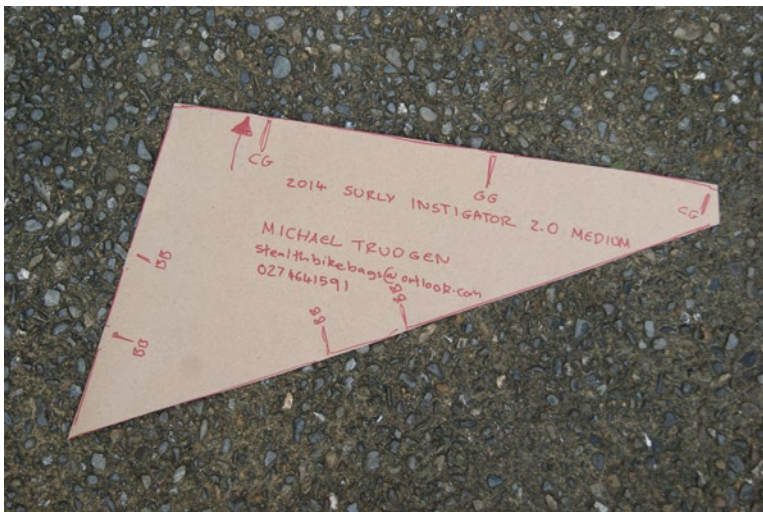 CG
GG
CG
2014 SURLY INSTIGATOR 2.0 MEDIUM
MICHAEL TRUDGEN
stealthbikebags@outlook.com
0274641591
BB
BB
BB
BB